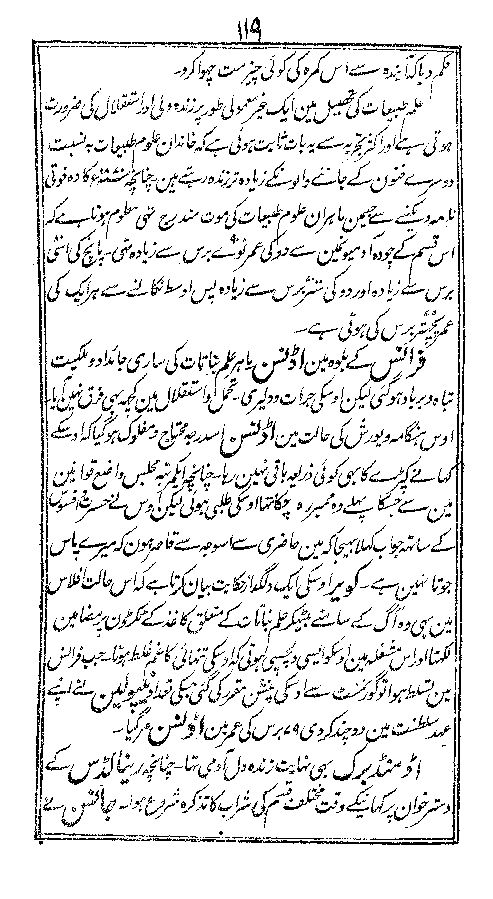 ۱۱۹
حکم دیا کہ آیندہ سے اس کمرہ کی کوئی چیز مت چھوا کرو۔
علم طبیعات کی تحصیل مین ایک غیر معمولی طور پر زندہ دلی اور استقلال کی ضرورت
ہوتی ہے اور اکثر تجربہ سے یہ بات ثابت ہوئی ہے کہ خاندان علوم طبیعات بہ نسبت
دوسرے فنون کے جاننے والونکے زیادہ تر زندہ رہتے ہین چنانچہ کا وہ فوتی
نامہ دیکھنے سے جسمین ماہران علوم طبیعات کی موت مندرج تھی معلوم ہوتا ہے کہ
اس قسم کے چودہ آدمیونمین سے دو کی عمر نوے برس سے زیادہ تھی۔ پانچ کی اسّی
برس سے زیادہ اور دو کی ستر برس سے زیادہ پس اوسط نکالنے سے ہر ایک کی
عمر پچھتر برس کی ہوتی ہے۔
فرانس کے بلوہ مین اڈنسن ماہر علم نباتات کی ساری جائداد و ملکیت
تباہ و برباد ہو گئی لیکن اوسکی جرات و دلیری۔ تحمل و استقلال مین کچھ بھی فرق نہین آیا۔
اوس ہنگامہ و یورش کی حالت مین اڈنسن اسدرجہ محتاج و مفلوک ہو گیا کہ اوسکے
کھانے کپڑے کا بھی کوئی ذریعہ باقی نہین رہا۔ چنانچہ ایکمرتبہ مجلس واضع قوانین
مین سے جسکا پہلے وہ ممبر رہ چکا تھا اوسکی طلبی ہوئی لیکن اوس نے حسرت و افسوس
کے ساتھ جواب کہلا بھیجا کہ مین حاضری سے اسوجہ سے قاصر ہون کہ میرے پاس
جوتا نہین ہے۔ کوویر اوسکی ایک دلگداز حکایت بیان کرتا ہے کہ اس حالت افلاس
مین بھی وہ آگ کے سامنے بیٹھکر علم نباتات کے متعلق کاغذ کے ٹکڑون پر مضامین
لکھتا اور اس مشغلہ مین اوسکو ایسی دلچسپی ہوتی کہ اوسکی تنہائی کا غم غلط ہوتا۔ جب فرانس
مین تسلط ہوا تو گورنمنٹ سے اوسکی پنشن مقرر کی گئی جسکی تعداد نپولین نے اپنے
عہد سلطنت مین دو چند کردی ۷۹ برس کی عمر مین اڈنسن مر گیا۔
اڈمنڈ برک بھی نہایت زندہ دل آدمی تھا۔ چنانچہ رینالڈس کے
دستر خوان پر کھانیکے وقت مختلف قسم کی شراب کا تذکرہ شروع ہوا۔ جانسن نے